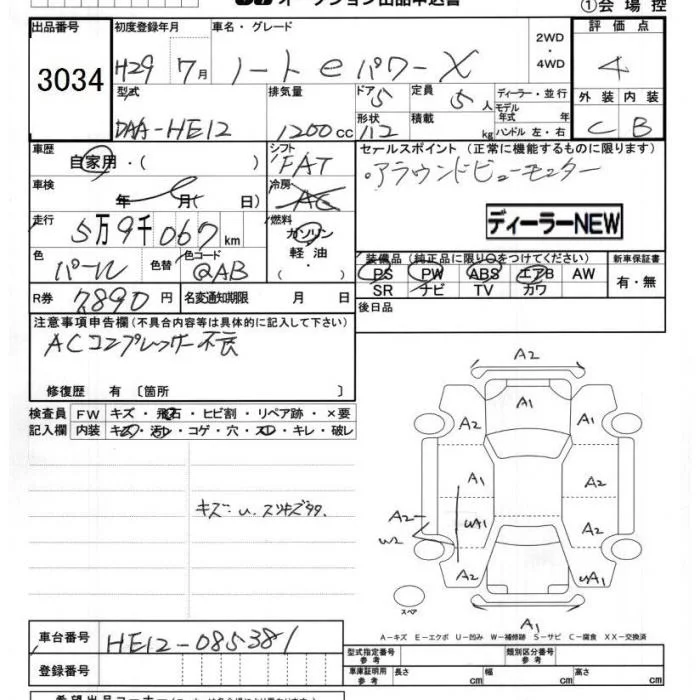 オークション出品申込書
①会場控
出品番号
3034
初度登録年月
H29 7月
車名・グレード
ノート eパワー X
2WD
・
4WD
評価点
4
型式
DAA-HE12
排気量
1200cc
ドア
5
形状
112
定員
5人
積載
kg
ディーラー・並行
モデル
年式 年
ハンドル 左・右
外装 内装
C B
車歴
自家用・( )
シフト
FAT
セールスポイント(正常に機能するものに限ります)
・アラウンドビューモニター
ディーラーNEW
車検
年 月( 日)
冷房
AC
走行
5万9千067km
燃料
ガソリン
軽油
・( )
色
パール
色替
色コード
QAB
装備品(純正品に限り○をつけてください)
PS PW ABS エアB AW
SR ナビ TV カワ
新車保証書
有・無
R券
7890円
名変通知期限 月 日
後日品
注意事項申告欄(不具合内容等は具体的に記入して下さい)
ACコンプレッサー不良
修復歴 有〔箇所 〕
検査員 FW キズ・飛石・ヒビ割・リペア跡・×要
記入欄 内装 キズ・汚レ・コゲ・穴・スレ・キレ・破レ
キズ U. スリキズ
A2
A1
A2 A1
A1 A2
A2 UA1 A2
U2
A2 UA1
スペア
A1
A-キズ E-エクボ U-凹み W-補修跡 S-サビ C-腐食 XX-交換済
車台番号
HE12-085381
登録番号
型式指定番号
参考
類別区分番号
参考
車庫証明用
参考
長さ cm 幅 cm 高さ cm
希望出品コーナー